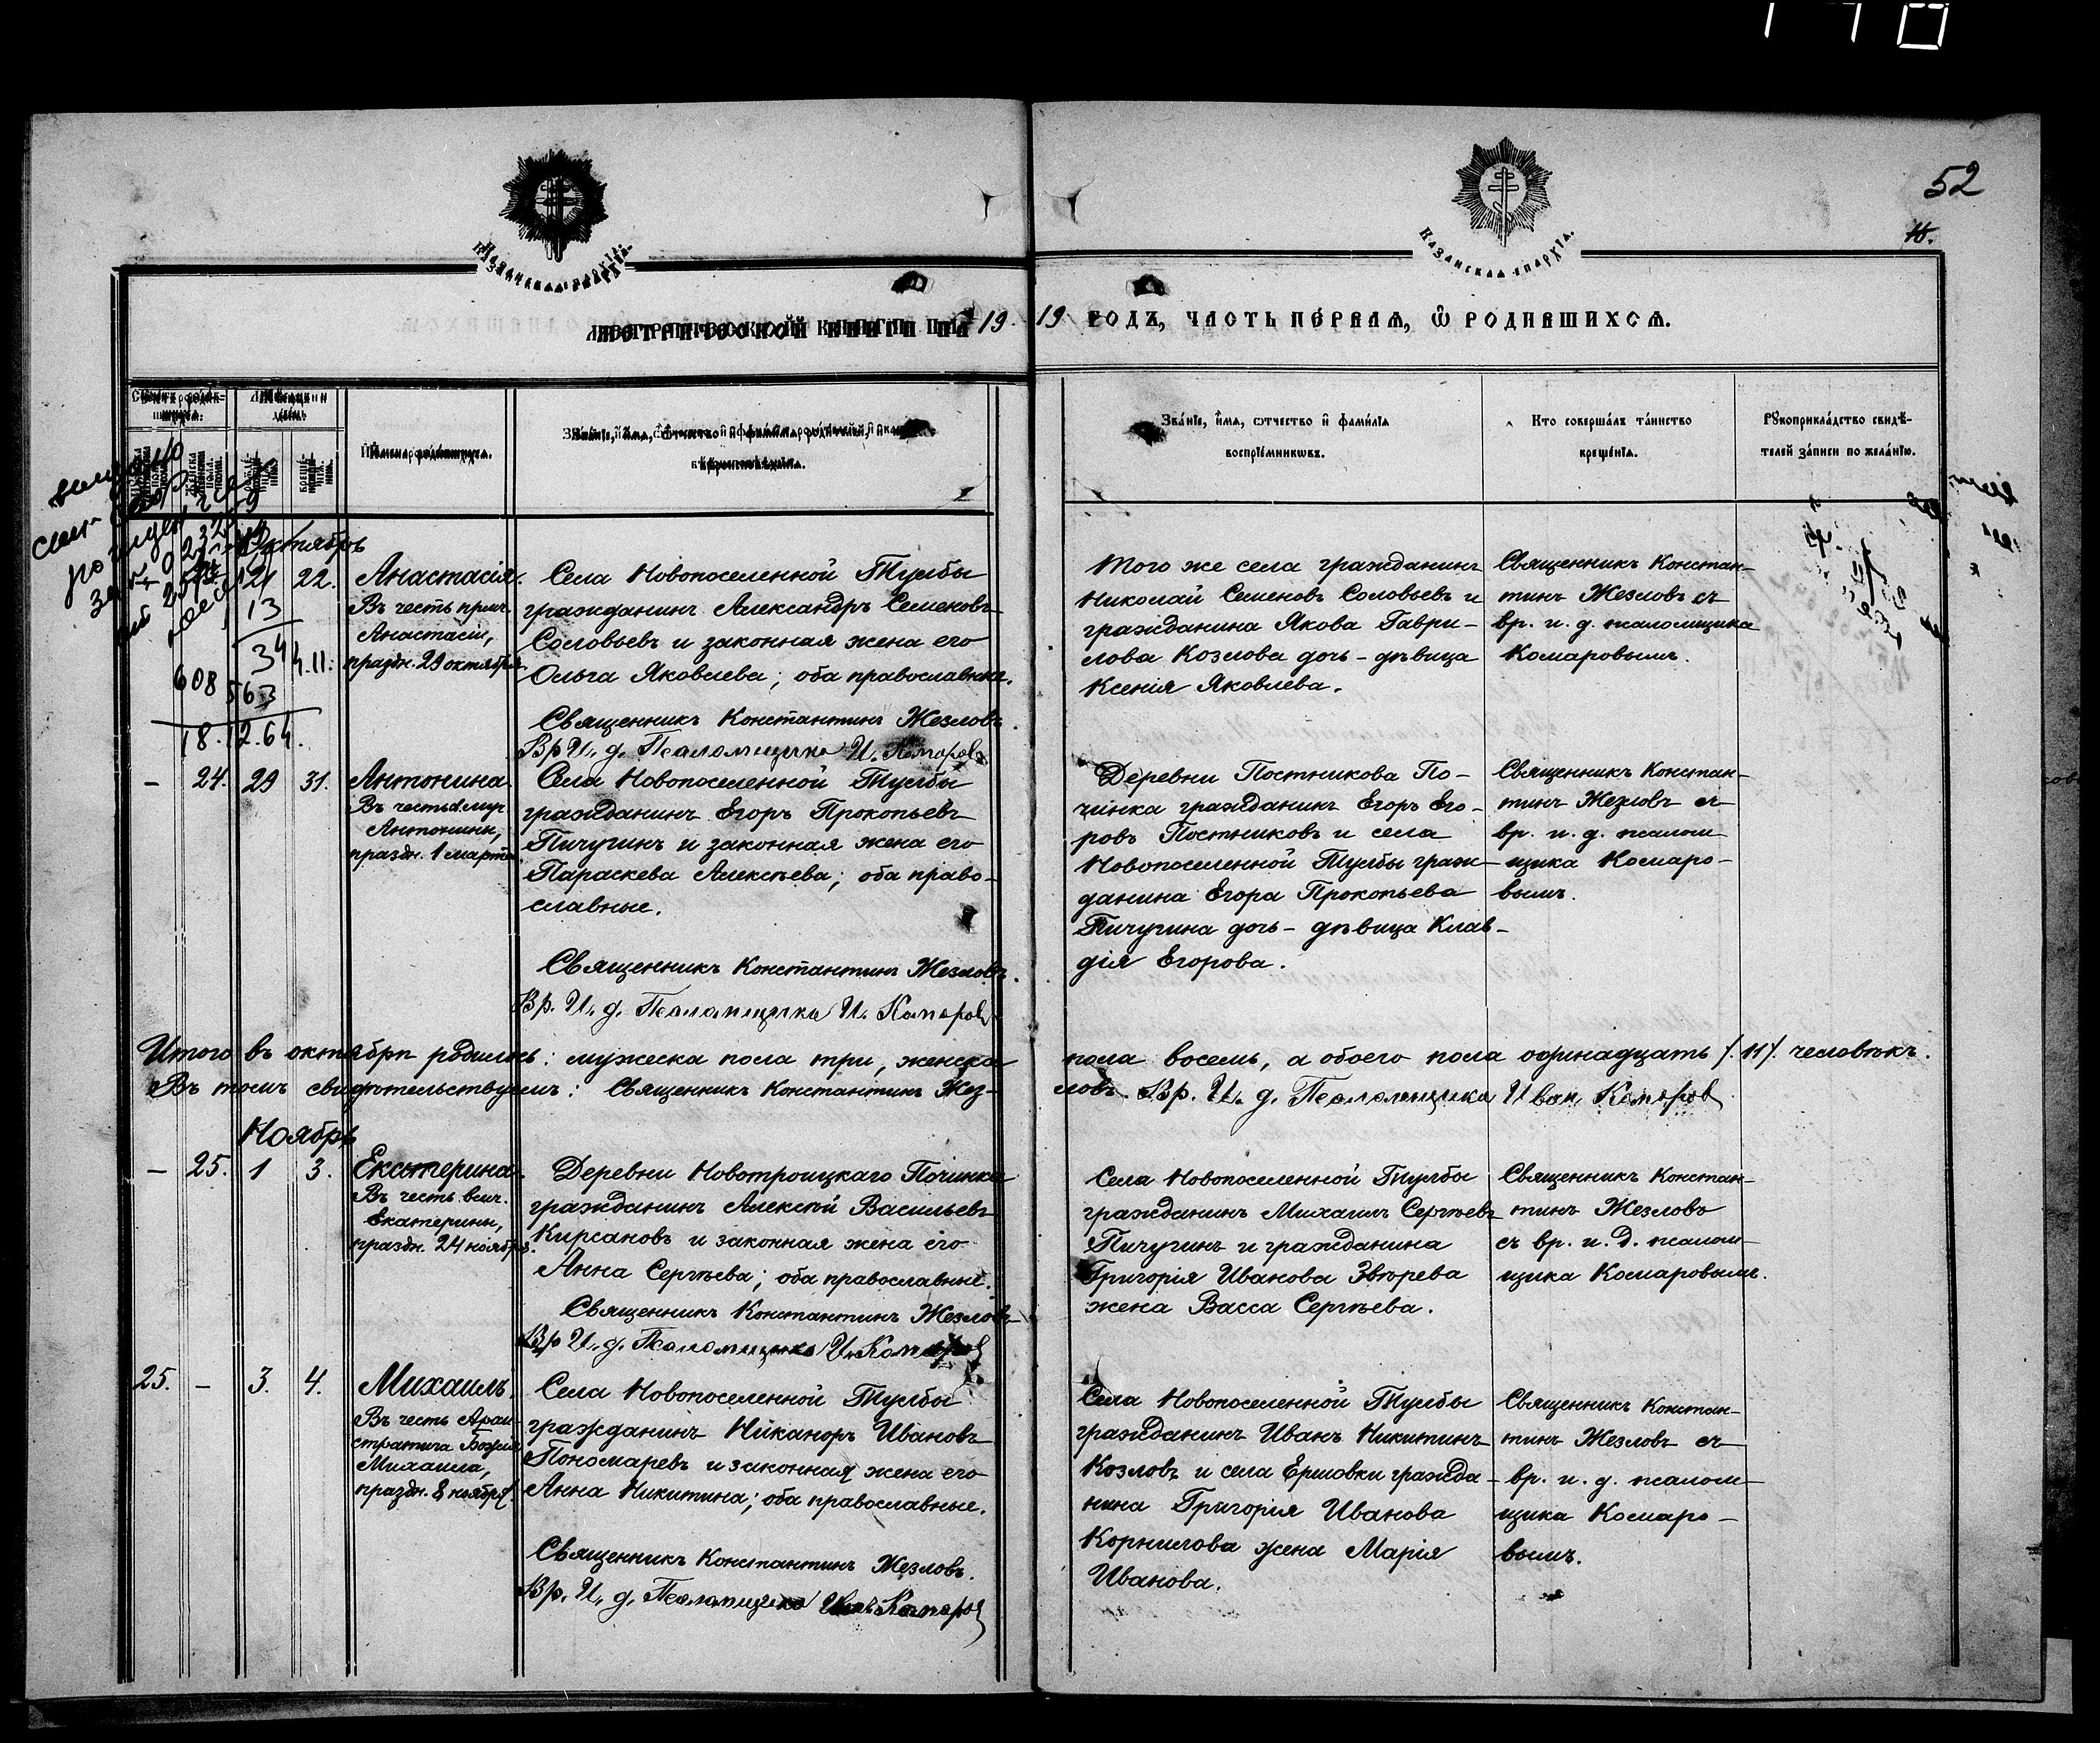 52
КАЗАНСКАЯ ЕПАРХІЯ.
КАЗАНСКАЯ ЕПАРХІЯ.
МЕТРИЧЕСКОЙ КНИГИ НА 19
19 ГОДЪ, ЧАСТЬ ПЕРВАЯ, Ѿ РОДИВШИХСЯ.
Имена родившихся.
Званіе, имя, отчество и фамилія родителей, и какого
вѣроисповѣданія.
Званіе, имя, отчество и фамилія
воспріемниковъ.
Кто совершалъ таинство
крещенія.
Рукоприкладство свидѣ-
телей записи по желанію.
Октябрь
21 22. Анастасія.
Въ честь прмч.
Анастасіи,
праздн. 29 октября.
13
34
4.11.
608 563
18.12.64.
Села Новопоселенной Тумбы
гражданинъ Александръ Семеновъ
Соловьевъ и законная жена его
Ольга Яковлева; оба православные.
Священникъ Константинъ Жезловъ.
Вр И. д. Псаломщика И. Комаровъ
Того же села гражданинъ
Николай Семеновъ Соловьевъ и
гражданина Якова Гаври-
лова Козлова дочь - дѣвица
Ксенія Яковлева.
Священникъ Констан-
тинъ Жезловъ съ
вр. и. д. псаломщика
Комаровымъ.
- 24. 29 31. Антонина.
Въ честь муч.
Антонины,
праздн. 1 марта.
Села Новопоселенной Тумбы
гражданинъ Егоръ Прокопьевъ
Пичугинъ и законная жена его
Параскева Алексѣева; оба право-
славные.
Священникъ Константинъ Жезловъ.
Вр. И. д. Псаломщика И. Комаровъ
Деревни Постникова По-
чинка гражданинъ Егоръ Его-
ровъ Постниковъ и села
Новопоселенной Тумбы граж-
данина Егора Прокопьева
Пичугина дочь - дѣвица Клав-
дія Егорова.
Священникъ Констан-
тинъ Жезловъ съ
вр. и. д. псалом-
щика Комаро-
вымъ.
Итого въ октябрѣ родилось: мужеска пола три, женска
пола восемь, а обоего пола одинадцать /.11/. человѣкъ.
Въ томъ свидѣтельствуемъ: Священникъ Константинъ Жез-
ловъ. Вр. И. д. Псаломщика Иван Комаров
Ноябрь
- 25. 1 3. Екатерина.
Въ честь велм.
Екатерины,
праздн. 24 ноября.
Деревни Новотроицкаго Починка
гражданинъ Алексѣй Васильевъ
Кирсановъ и законная жена его
Анна Сергѣева; оба православные.
Священникъ Константинъ Жезловъ
Вр И. д. Псаломщика И. Комаров
Села Новопоселенной Тумбы
гражданинъ Михаилъ Сергѣевъ
Пичугинъ и гражданина
Григорія Иванова Звѣрева
жена Васса Сергѣева.
Священникъ Констан-
тинъ Жезловъ
съ вр. и. д. псалом-
щика Комаровымъ.
25. - 3. 4. Михаилъ.
Въ честь Архи-
стратига Божія
Михаила,
праздн. 8 ноября.
Села Новопоселенной Тумбы
гражданинъ Никаноръ Ивановъ
Пономаревъ и законная жена его
Анна Никитина; оба православные.
Священникъ Константинъ Жезловъ.
Вр. И. д. Псаломщика Комаров
Села Новопоселенной Тумбы
гражданинъ Иванъ Никитинъ
Козловъ и села Ершовки гражда-
нина Григорія Иванова
Корнилова жена Марія
Иванова.
Священникъ Констан-
тинъ Жезловъ съ
вр. и. д. псалом-
щика Комаро-
вымъ.